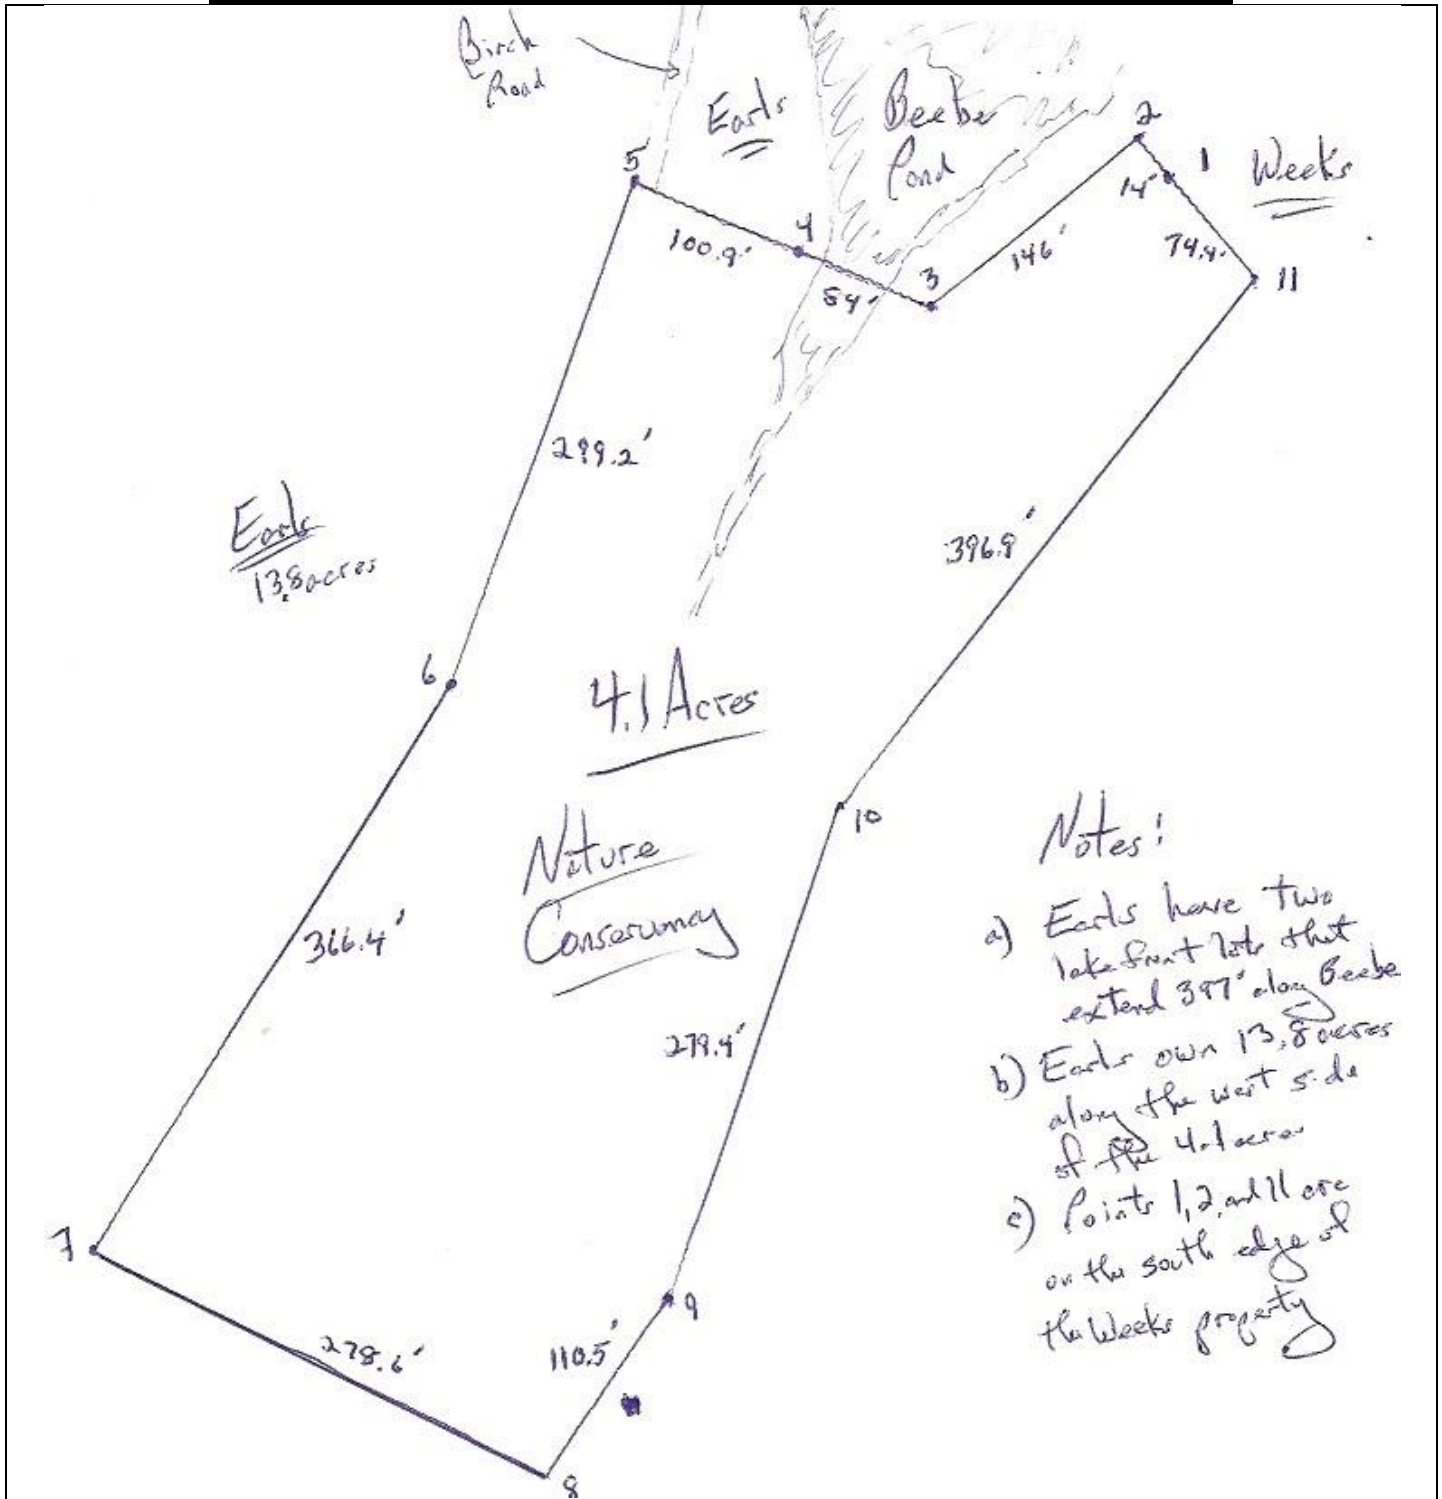 Birch
Road
Earls
Beebe
Pond
2
1
Weeks
14'
5
4
100.9'
3
84'
146'
74.4'
11
299.2'
Earls
13.8 acres
396.9'
6
4.1 Acres
10
Nature
Conservancy
366.4'
279.4'
7
9
278.6'
110.5'
8
Notes:
a) Earls have two
lakefront lots that
extend 397' along Beebe
b) Earls own 13.8 acres
along the west side
of the 4.1 acres
c) Points 1, 2, and 11 are
on the south edge of
the Weeks property